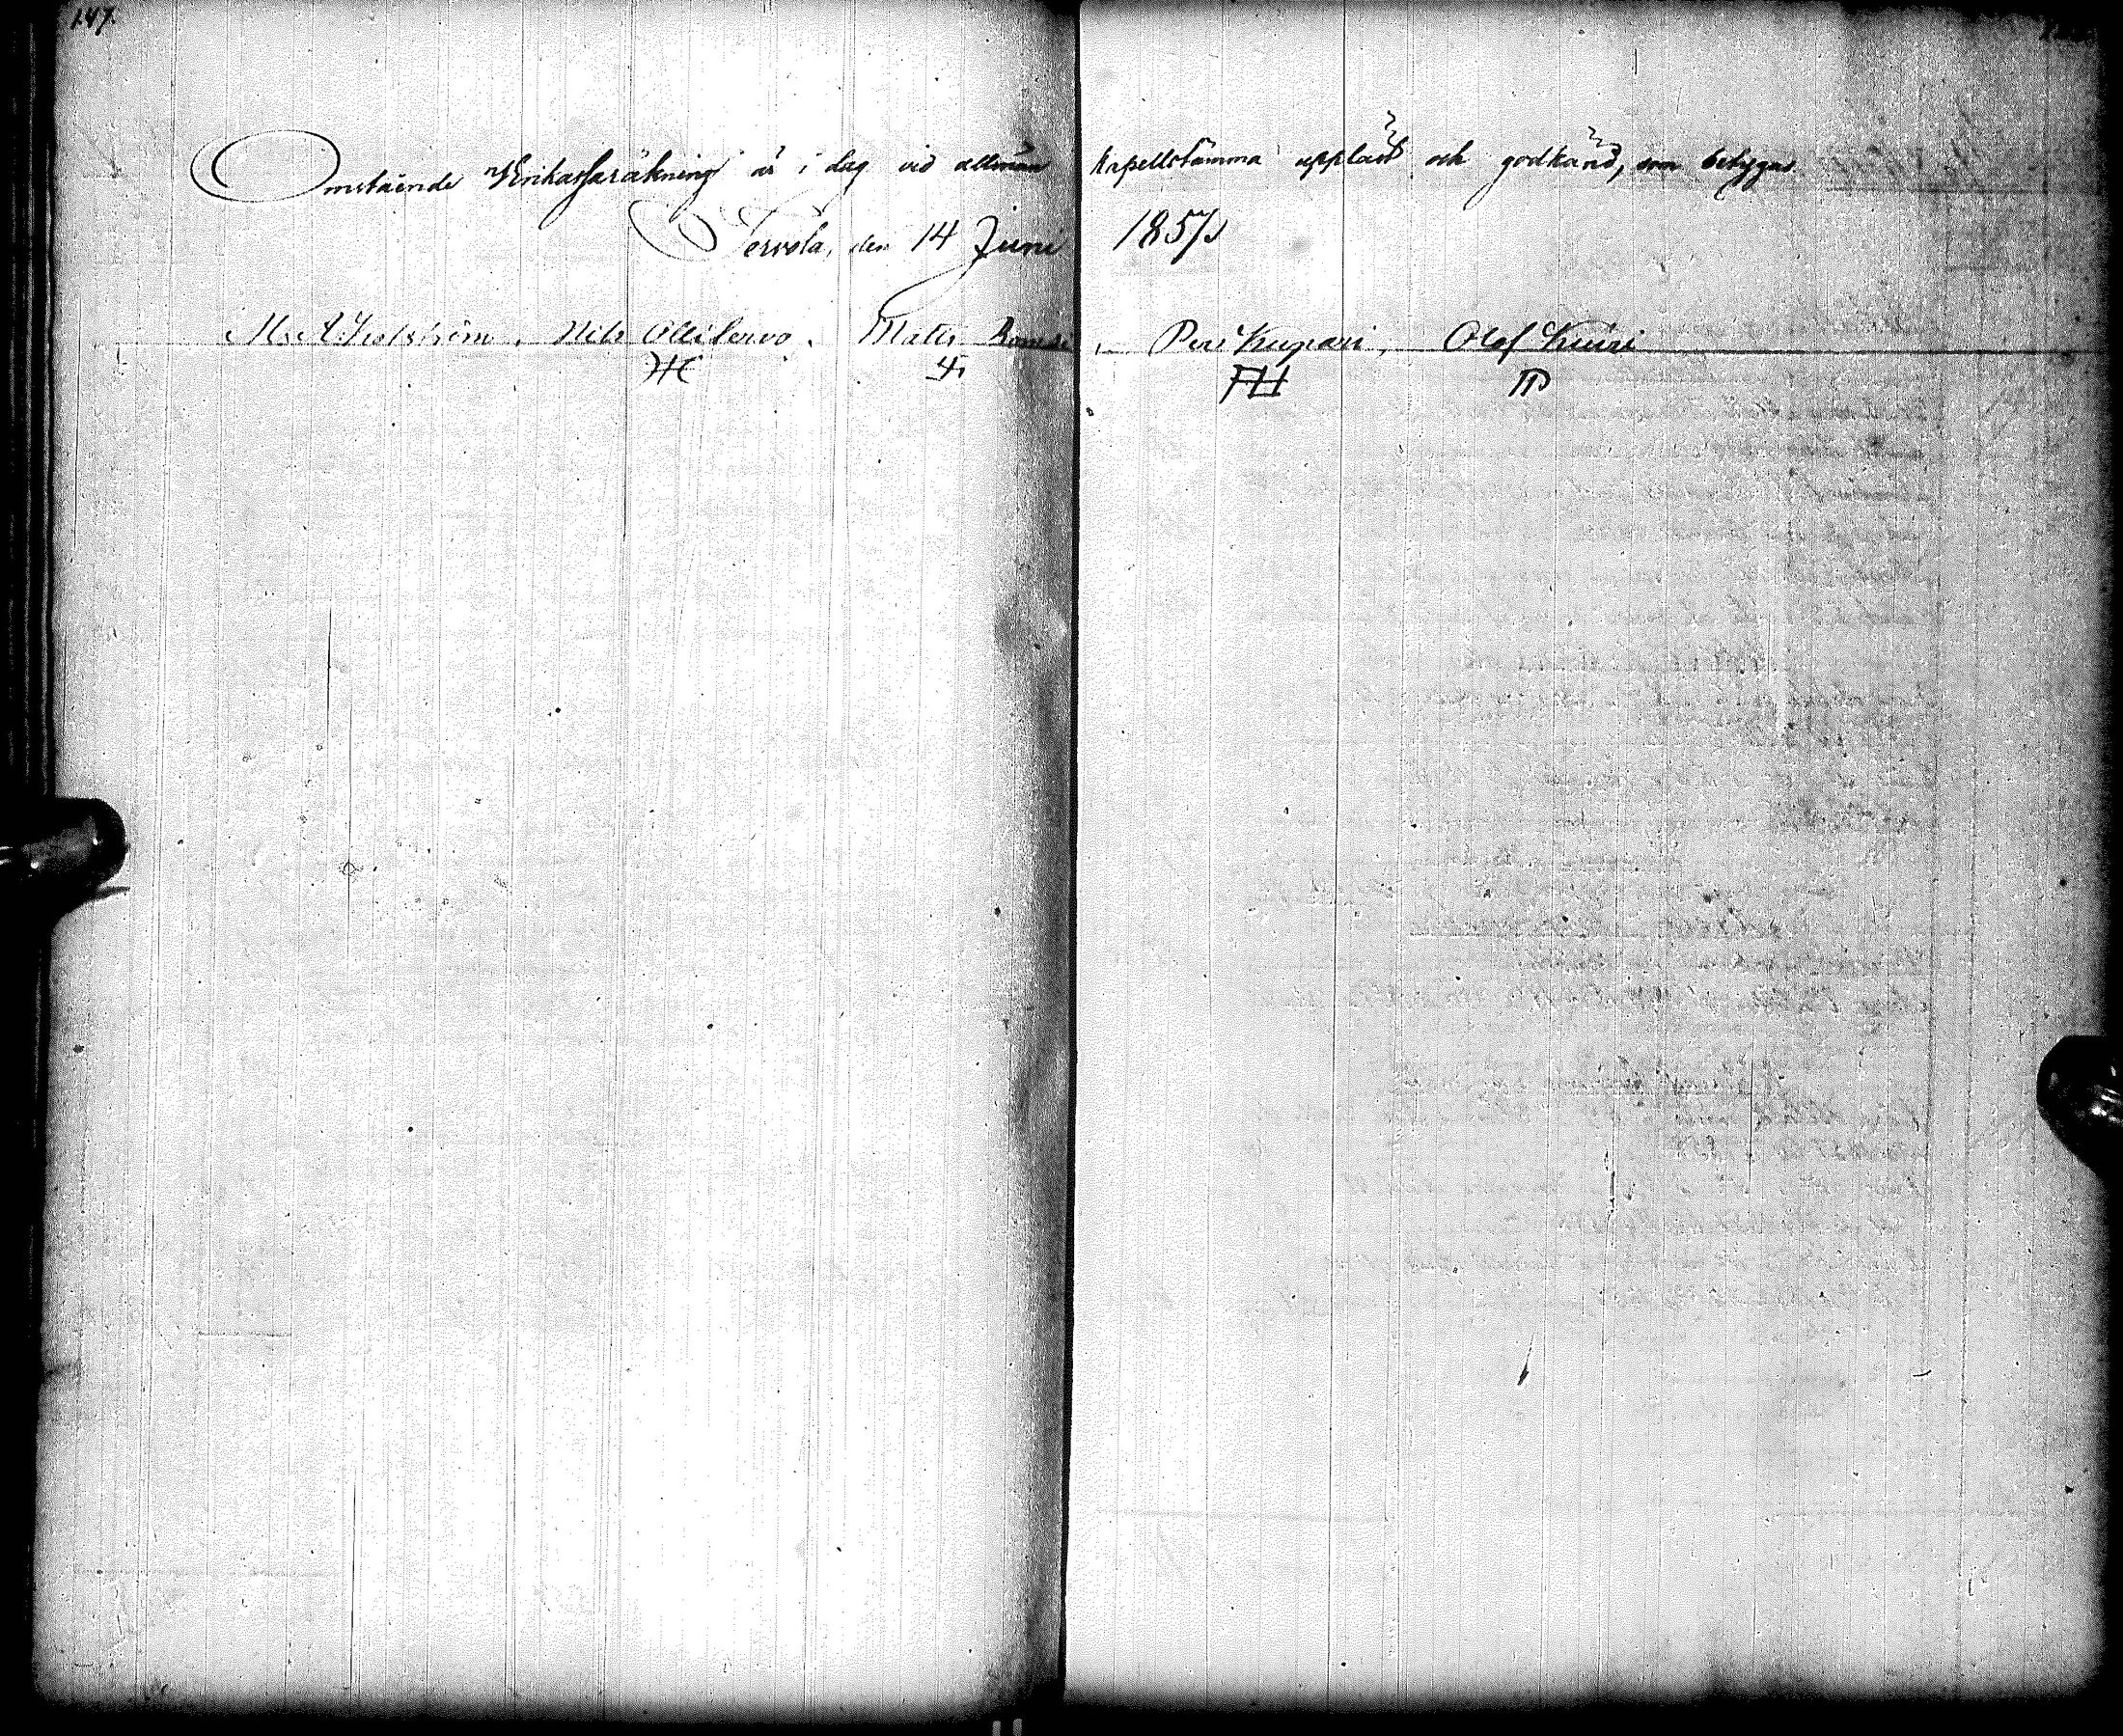 147.
Omstående Kyrkokassaräkning är i dag vid allmän kapellstämma uppläst och godkänd, som betygas.
Tervola, den 14 Juni 1857,
Nils Ollilervo. Matts Per Kupari, Olof Kuiri